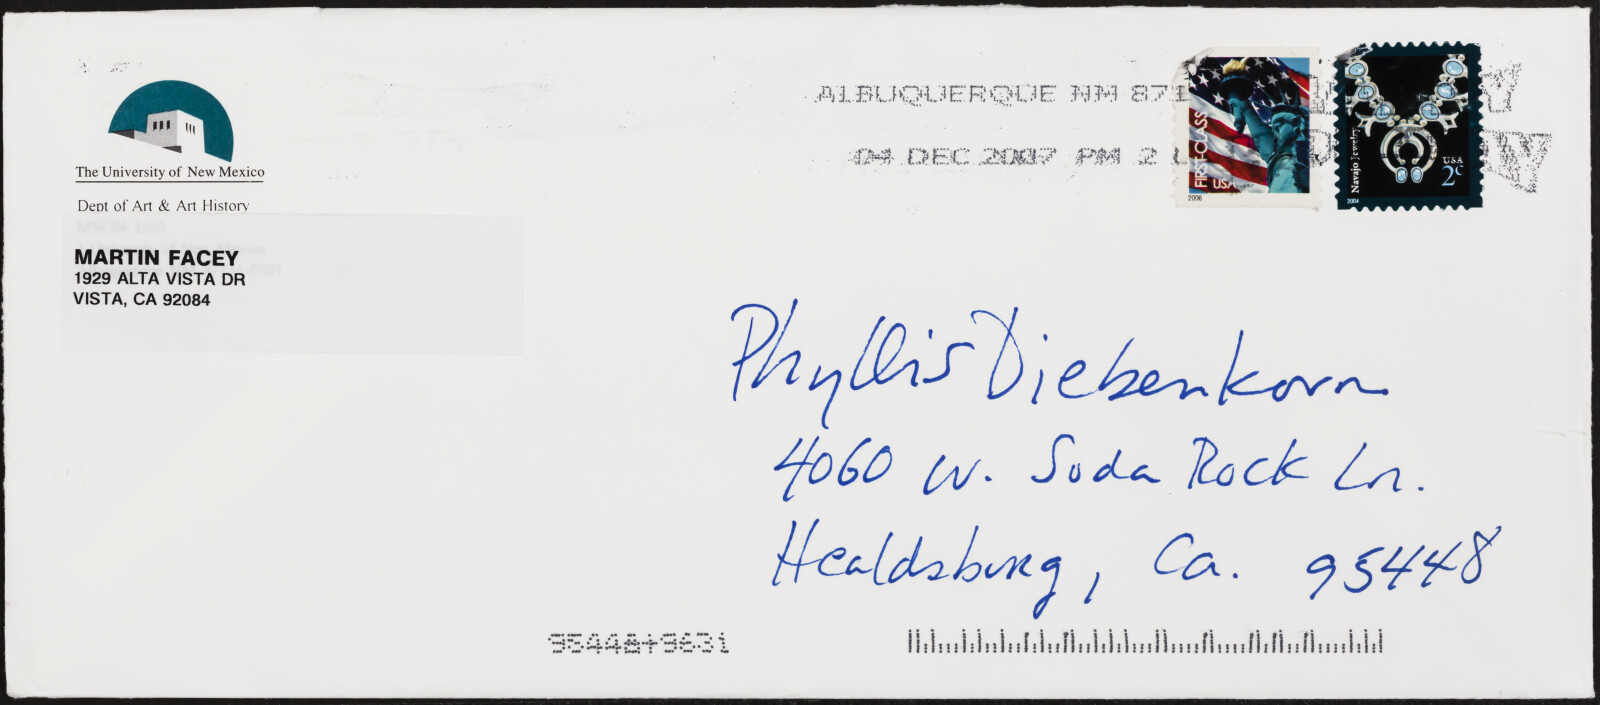 The University of New Mexico
Dept of Art & Art History
MARTIN FACEY
1929 ALTA VISTA DR
VISTA, CA 92084
ALBUQUERQUE NM 871
04 DEC 2007 PM 2
FIRST-CLASS
USA
2006
Navajo Jewelry
USA
2c
2004
Phyllis Diebenkorn
4060 W. Soda Rock Ln.
Healdsburg, Ca. 95448
95448+9631